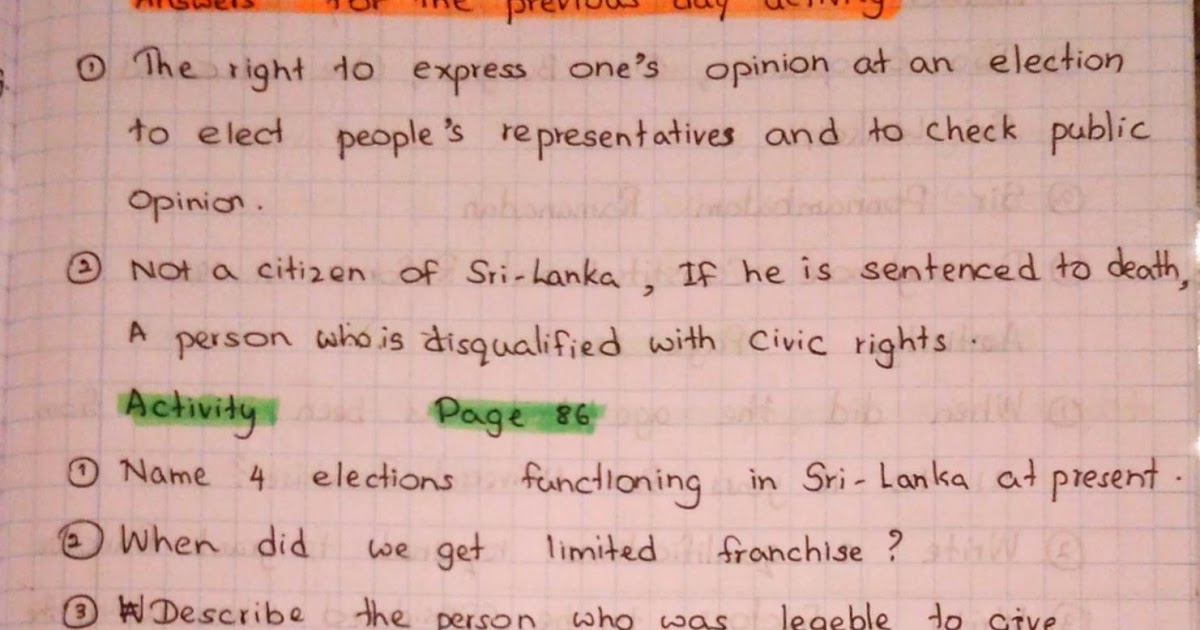 Answers for the previous day activity
① The right to express one's opinion at an election
to elect people's representatives and to check public
Opinion.
② Not a citizen of Sri-Lanka, If he is sentenced to death,
A person who is disqualified with Civic rights.
Activity Page 86
① Name 4 elections functioning in Sri-Lanka at present.
② When did we get limited franchise?
③ Describe the person who was legeble to give